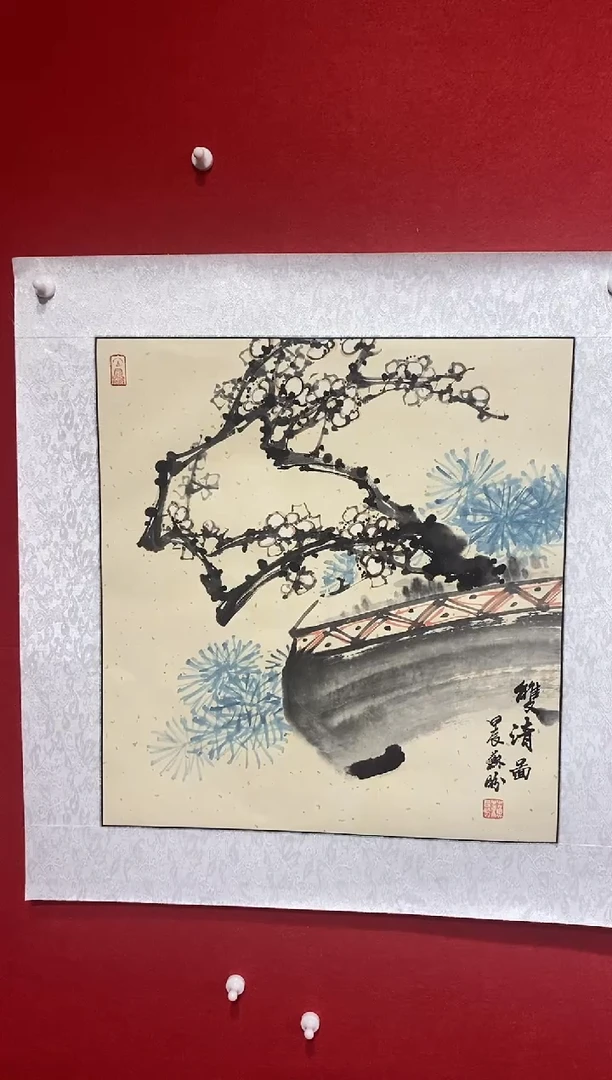 雙清圖
甲辰蘇